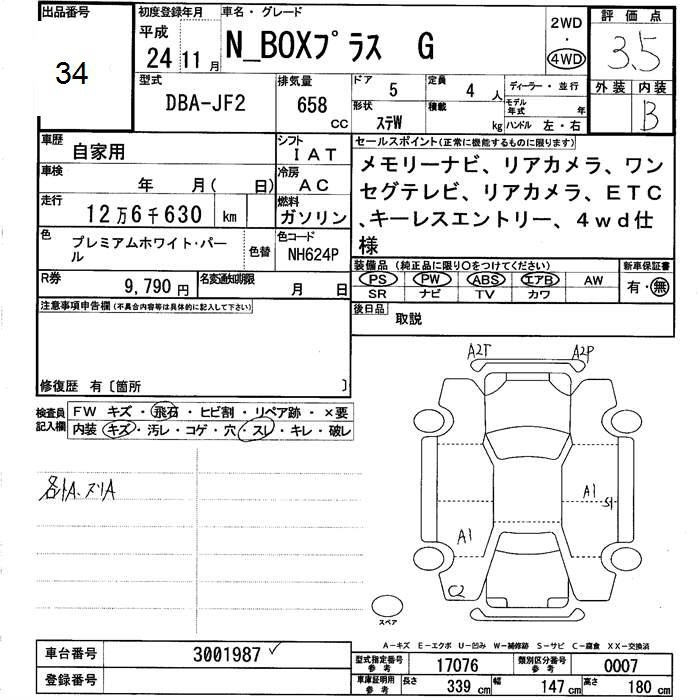 出品番号
34
初度登録年月
平成
24 11 月
車名・グレード
N_BOXプラス G
2WD
・
4WD
評価点
3.5
外装 内装
B
型式
DBA-JF2
排気量
658
CC
ドア 5
定員 4 人
ディーラー・並行
形状 ステW
積載 kg
モデル年式 年
ハンドル 左・右
車歴 自家用
シフト IAT
車検 年 月( 日)
冷房 AC
走行 12万6千630 km
燃料 ガソリン
色 プレミアムホワイト・パール
色替
色コード NH624P
R券 9,790 円
名変通知期限 月 日
セールスポイント(正常に機能するものに限ります)
メモリーナビ、リアカメラ、ワン
セグテレビ、リアカメラ、ETC
、キーレスエントリー、4wd仕
様
装備品 (純正品に限り○をつけてください)
PS PW ABS エアB AW
SR ナビ TV カワ
新車保証書
有・無
後日品 取説
注意事項申告欄(不具合内容等は具体的に記入して下さい)
修復歴 有〔箇所 〕
検査員記入欄
FW キズ・飛石・ヒビ割・リペア跡・×要
内装 キズ・汚レ・コゲ・穴・スレ・キレ・破レ
A2T
A2P
A1
S1
A1
C2
スペア
A-キズ E-エクボ U-凹み W-補修跡 S-サビ C-腐食 XX-交換済
車台番号 3001987
登録番号
型式指定番号 参考 17076
類別区分番号 参考 0007
車庫証明用 参考 長さ 339 cm 幅 147 cm 高さ 180 cm